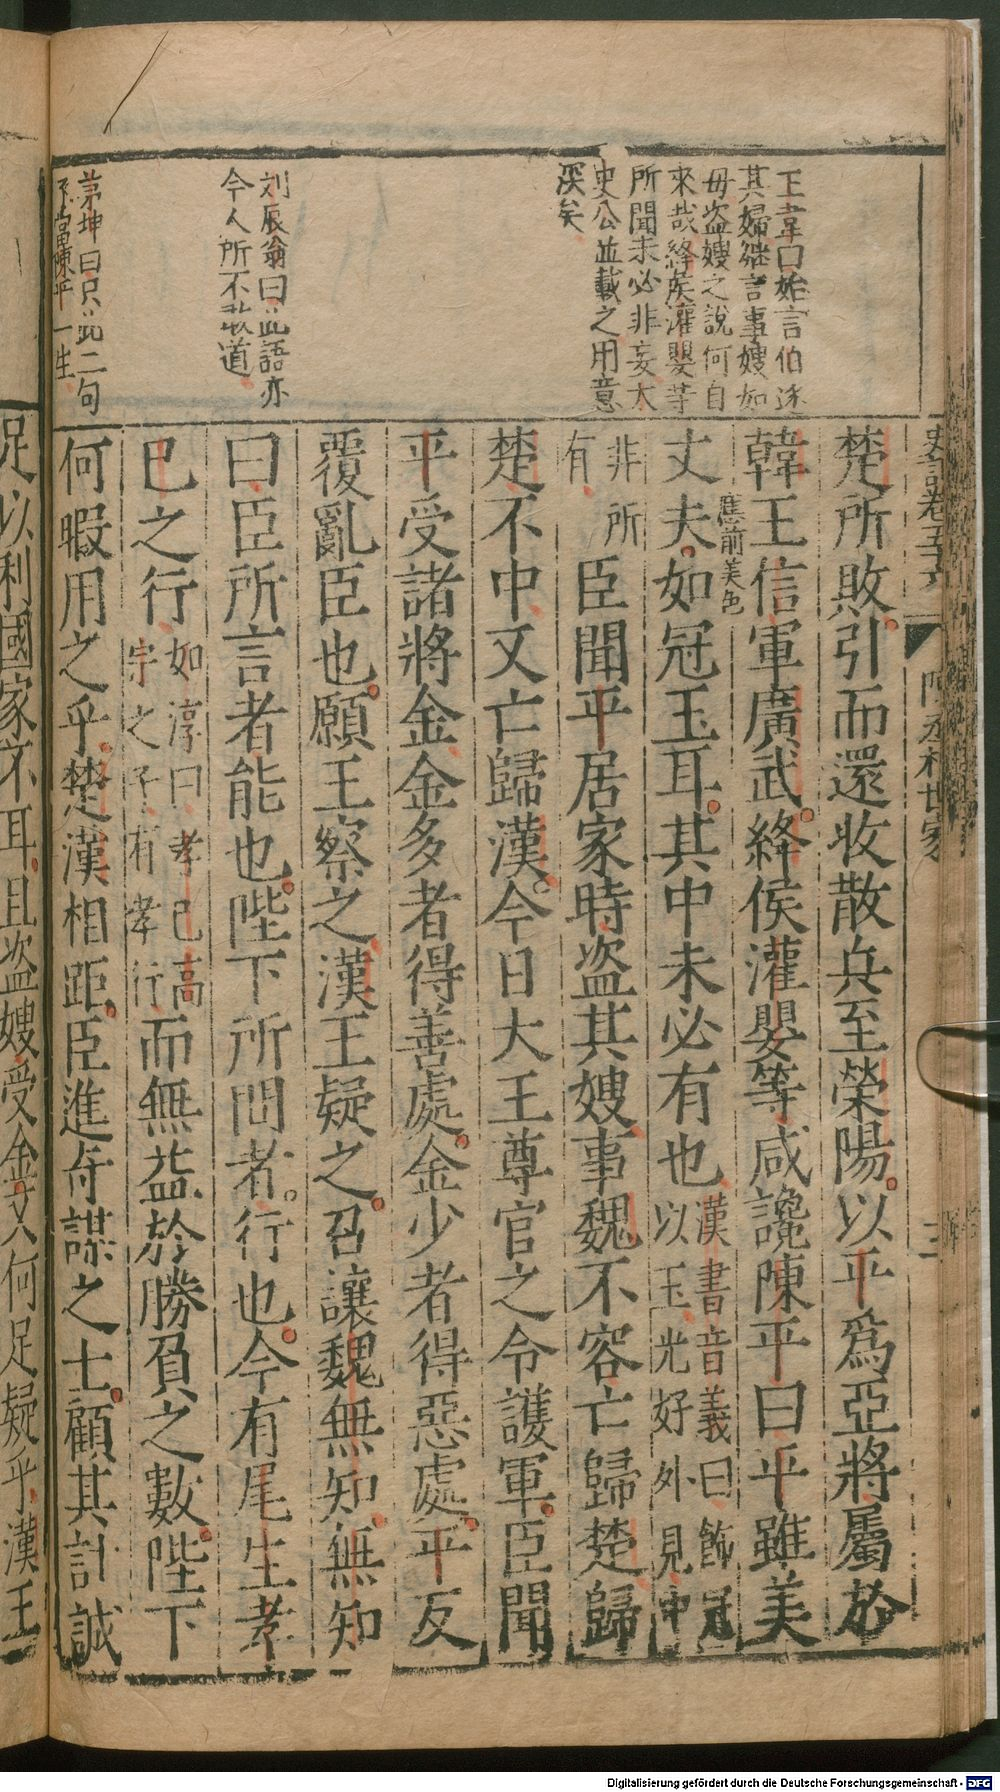 王韋曰始言伯逐
其婦繼言事嫂如
毋盗嫂之說何自
來哉絳侯灌嬰等
所聞未必非妄太
史公並載之用意
深矣
刘辰翁曰此語亦
今人所不敢道
茅坤曰只此二句
陳平一生
史記卷五十六
陳丞相世家
三
楚所敗引而還收散兵至滎陽以平爲亞將屬於
韓王信軍廣武絳侯灌嬰等咸讒陳平曰平雖美
應前美色
丈夫如冠玉耳其中未必有也漢書音義曰飾冠
以玉光好外見中
非所
有
臣聞平居家時盗其嫂事魏不容亡歸楚歸
楚不中又亡歸漢今日大王尊官之令護軍臣聞
平受諸將金金多者得善處金少者得惡處平反
覆亂臣也願王察之漢王疑之召讓魏無知無知
曰臣所言者能也陛下所問者行也今有尾生孝
已之行如淳曰孝已高
宗之子有孝行
而無益於勝負之數陛下
何暇用之乎楚漢相距臣進奇謀之士顧其計誠
足以利國家不耳且盗嫂受金又何足疑乎漢王
Digitalisierung gefördert durch die Deutsche Forschungsgemeinschaft - DFG